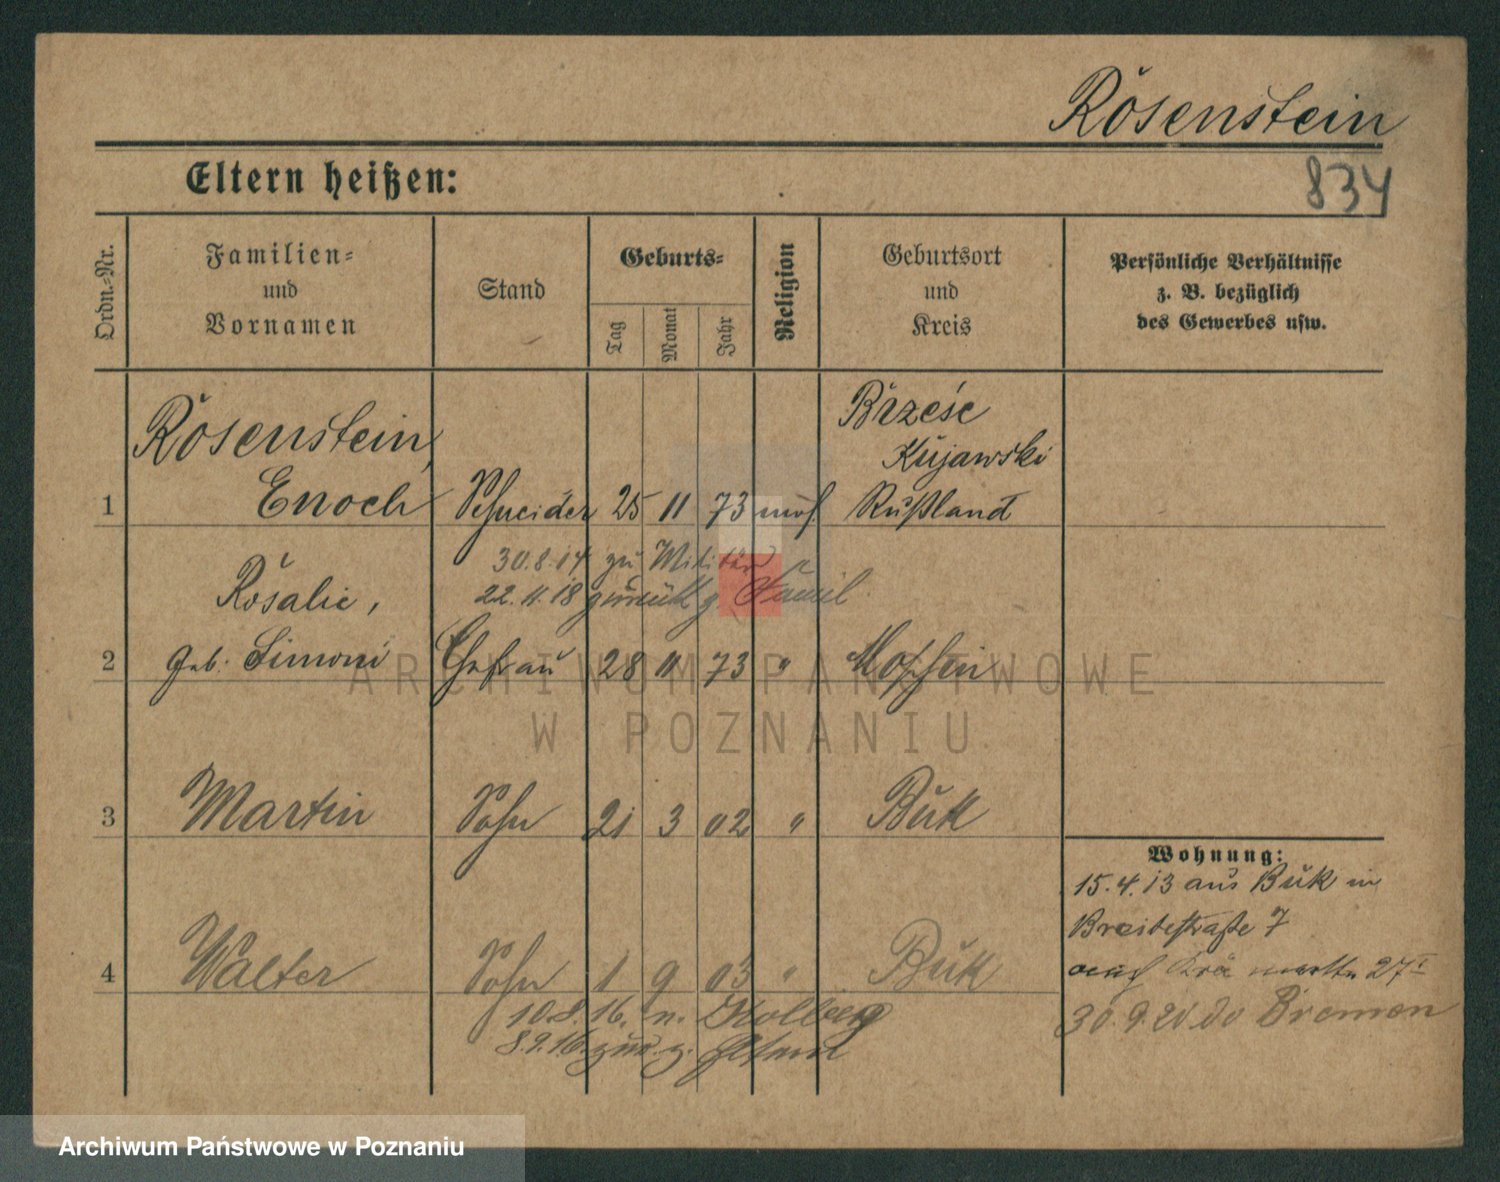 Rosenstein
834
Eltern heißen:
Ordn.-Nr.
Familien-
und
Vornamen
Stand
Geburts-
Tag
Monat
Jahr
Religion
Geburtsort
und
Kreis
Persönliche Verhältnisse
z. B. bezüglich
des Gewerbes usw.
Rosenstein,
Enoch
1 Schneider 25 11 73 mos.
Brześć
Kujawski
Rußland
30.8.14 zu Militär
22.11.18 zurück z. Famil
Rosalie,
2 geb. Simoni Ehefrau 28 11 73 "
3 Martin Sohn 21 3 02 " Buk
4 Walter Sohn 1 9 03 " Buk
10.8.16. n. Kolberg
8.9.16. zur. z. Eltern
Wohnung:
15.4.13 aus Buk in
Breitestraße 7
27 I
30.9.20 do Bremen
ARCHIWUM PAŃSTWOWE
W POZNANIU
Archiwum Państwowe w Poznaniu